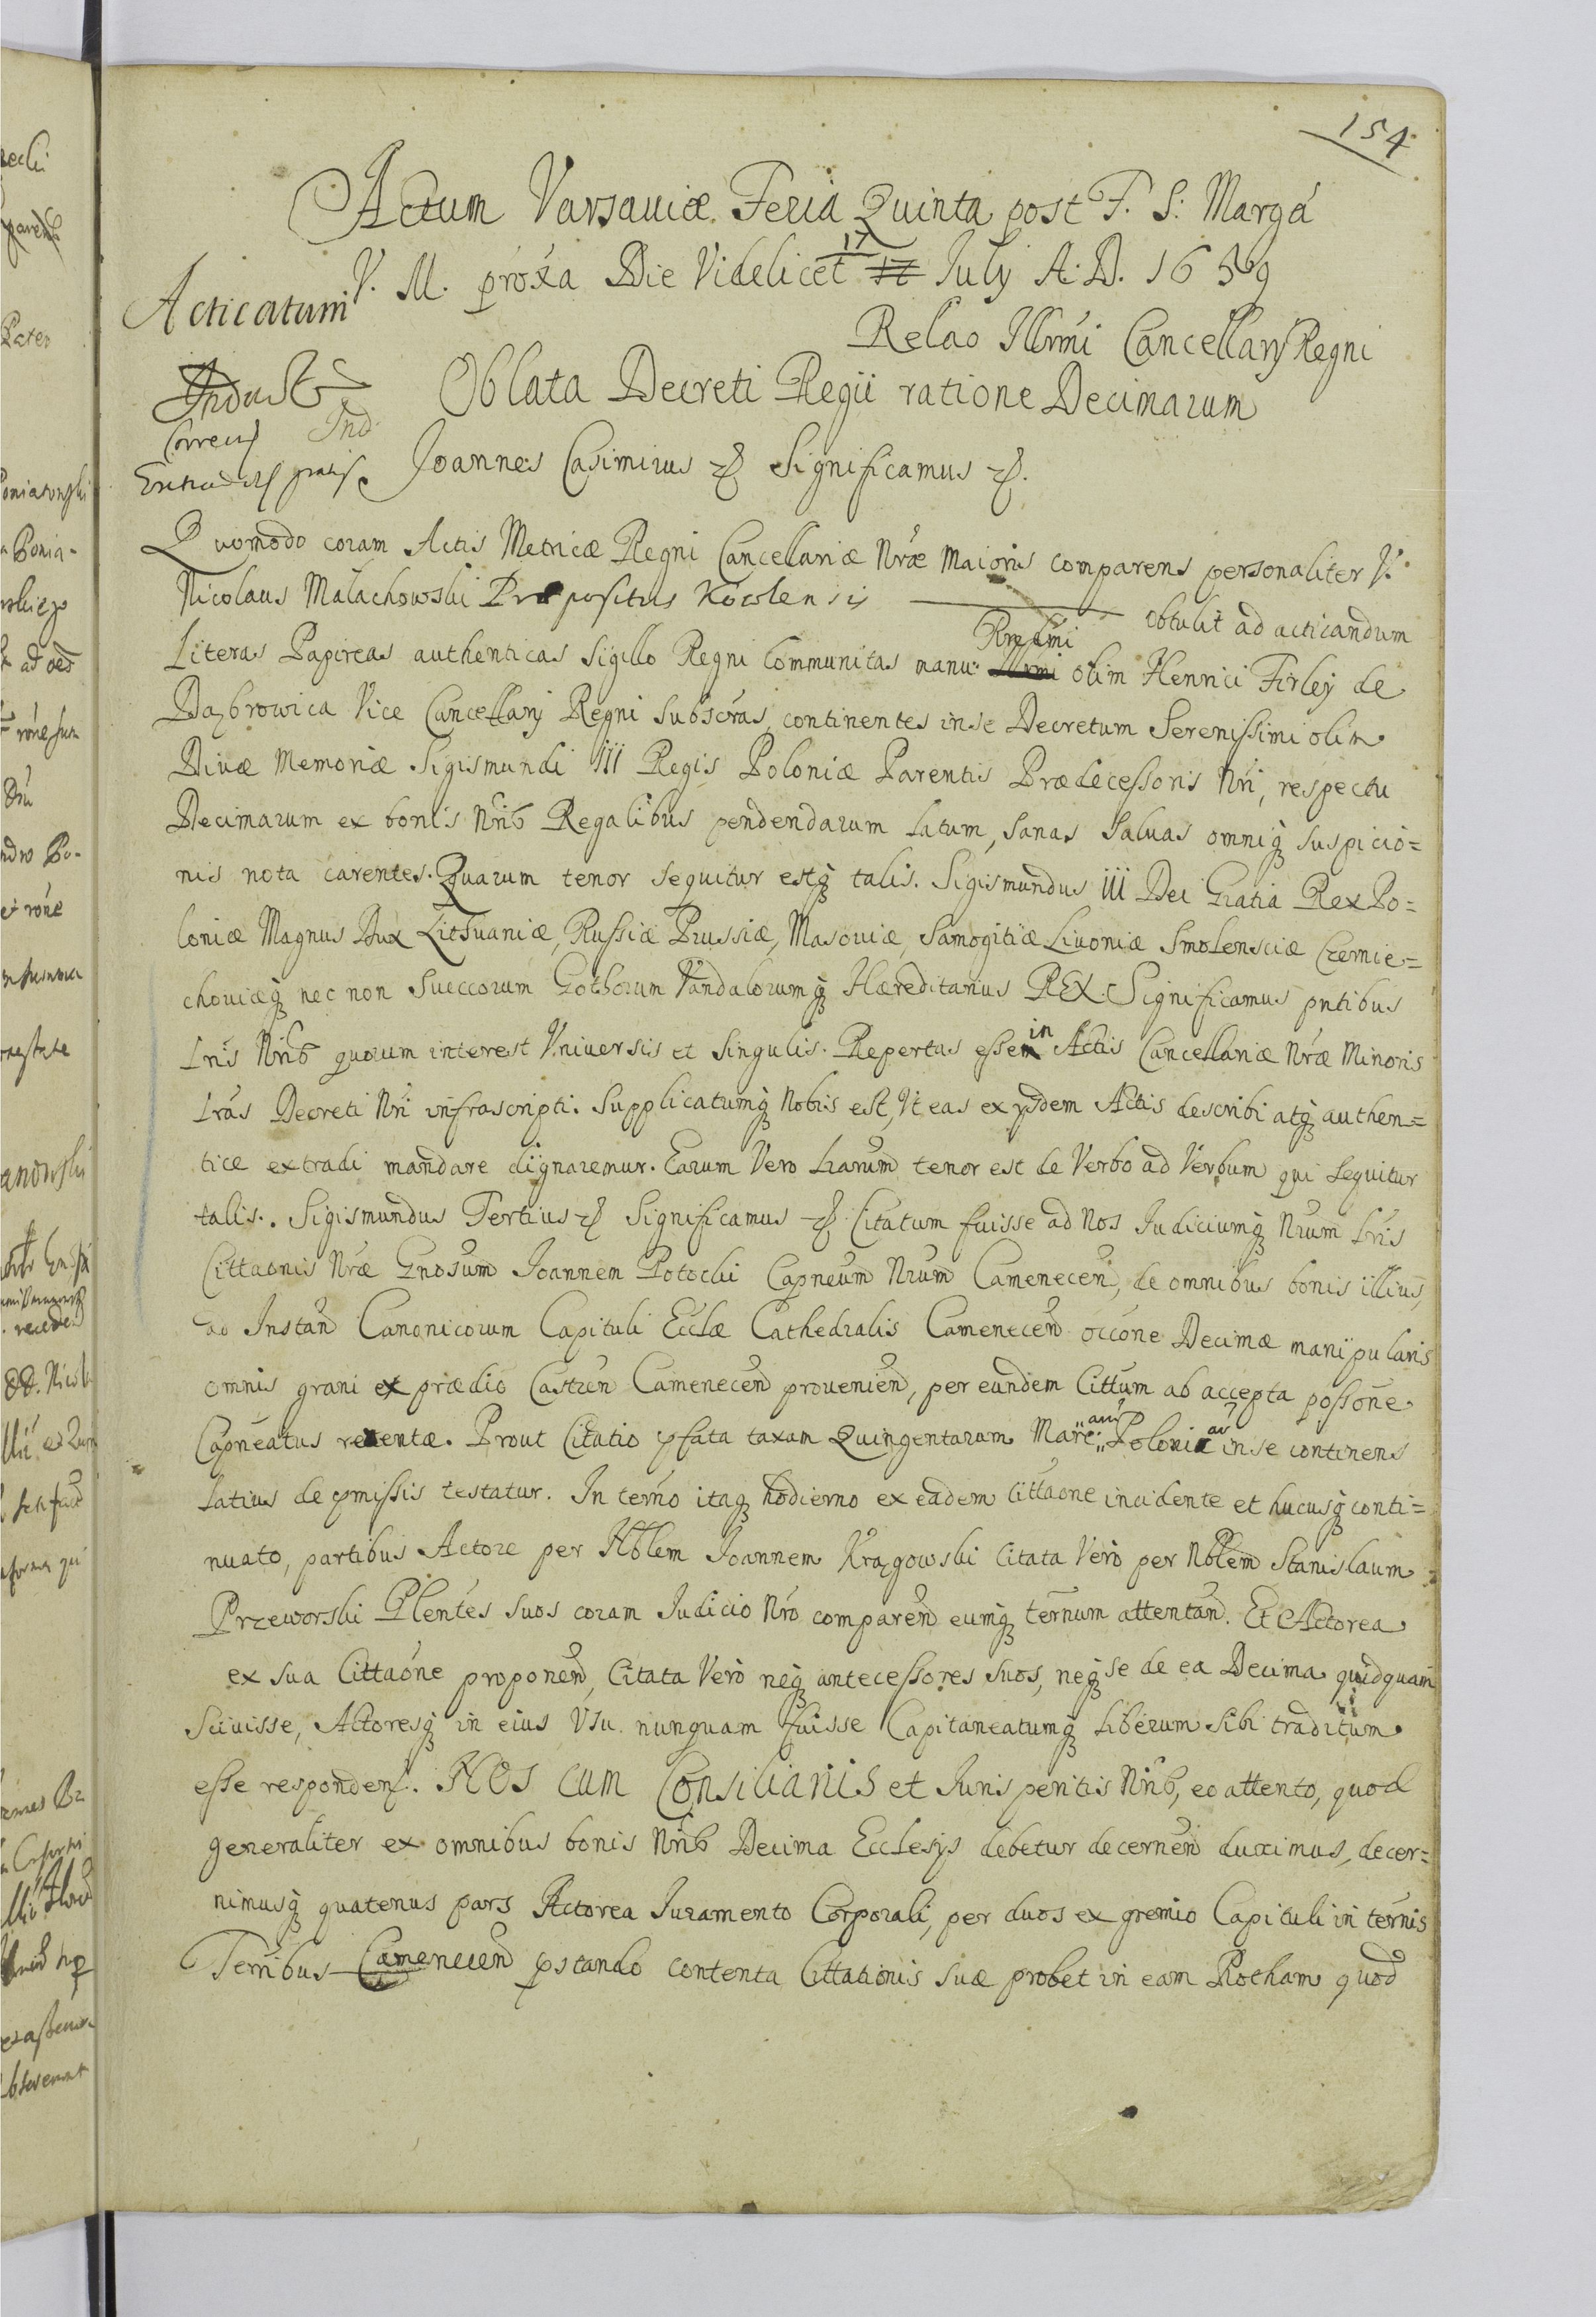 154
Actum Varsaviæ Feria Quinta post F. S: Margá
V. M. proxa Die Videlicet 17 July A. D. 1659
Acticatum
Relao Illrmi Cancellarij Regni
Oblata Decreti Regii ratione Decimarum
Ind
Correcũ
Joannes Casimirus &c Significamus &c.
Quomodo coram Actis Metricæ Regni Cancellariæ Nræ Maioris comparens personaliter V.
Nicolaus Małachowski Præpositus Kowlensis obtulit ad acticandum
Literas Papireas authenticas Sigillo Regni Communitas manu Rndmi olim Henrici Firley de
Dązbrowica Vice Cancellarij Regni Subscras, continentes in se Decretum Serenissimi olim
Divæ Memoriæ Sigismundi III Regis Poloniæ Parentis Prædecessoris Nri, respectu
Decimarum ex bonis Nrib Regalibus pendendarum latum, Sanas Saluas omniq suspicio=
nis nota carentes. Quarum tenor sequitur estq talis. Sigismundus III Dei Gratia Rex Po=
loniæ Magnus Dux Lithuaniæ, Russiæ Prussiæ, Masouiæ, Samogitiæ Liuoniæ Smolensciæ Czernie=
chouiæq nec non Sueccorum Gothorum Vandalorumq Hæreditarius REX. Significamus pntibus
Lris Nrib quorum interest Vniuersis et Singulis. Repertas esse in Actis Cancellariæ Nræ Minoris
Lras Decreti Nri infrascripti. Supplicatumq Nobis est, Vt eas ex ijsdem Actis describi atq authen=
tice extradi mandare dignaremur. Earum Vero Lrarum tenor est de Verbo ad Verbum qui sequitur
talis. Sigismundus Tertius &c Significamus &c. Citatum fuisse ad Nos Iudiciumq Nrum Lris
Cittaonis Nræ Gnosum Joannem Potocki Capneum Nrum Camenecen, de omnibus bonis illius,
ad Instan Canonicorum Capituli Ecclæ Cathedralis Camenecen occone Decimæ manipularis
omnis grani ex prædio Castren Camenecen prouenien, per eundem Cittum ab accepta possone
Capneatus retentæ. Prout Citatio pfata taxam Quingentarum Marcarum Polonicar in se continens
latius de pmissis testatur. In termo itaq hodierno ex eadem Cittaone incidente et hucusq conti=
nuato, partibus Actore per Nblem Joannem Krągowski Citata Vero per Nblem Stanislaum
Przeworski Plentes suos coram Iudicio Nro comparen eumq ternum attentan. Et Actorea
ex sua Cittaone proponen, Citata Vero neq antecessores suos, neq se de ea Decima quidquam
Sciuisse, Actoresq in eius Vsu nunquam fuisse Capitaneatumq liberum sibi traditum
esse responden. NOS cum Consiliariis et Iuris peritis Nrib, eo attento, quod
generaliter ex omnibus bonis Nrib Decima Ecclesijs debetur decernen duximus, decer=
nimusq quatenus pars Actorea Iuramento Corporali, per duos ex gremio Capituli in ternis
Terribus Camenecen pstando contenta Cittationis suæ probet in eam Rotham quod